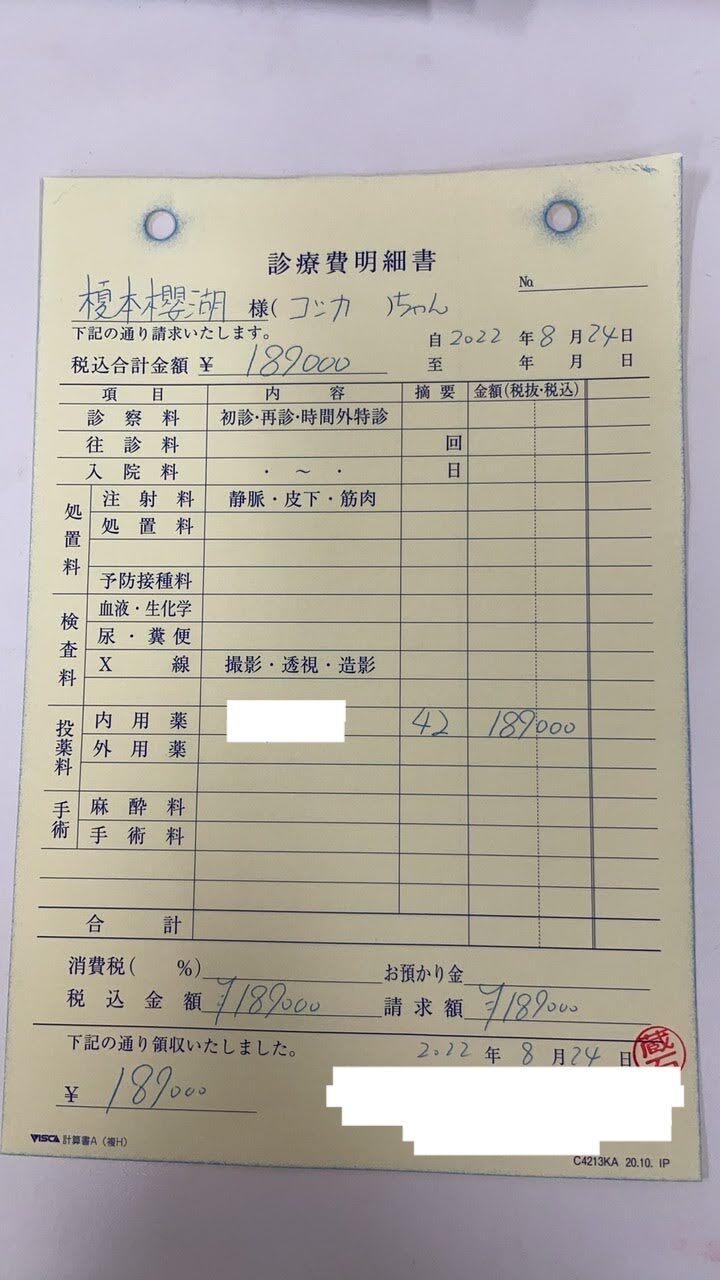 診療費明細書
No.
榎本櫻湖 様( コッカ )ちゃん
下記の通り請求いたします。
自 2022 年 8 月 24 日
税込合計金額 ¥ 189000
至 年 月 日
項目 内容 摘要 金額(税抜・税込)
診察料 初診・再診・時間外特診
往診料 回
入院料 ・ ~ ・ 日
処置料
注射料 静脈・皮下・筋肉
処置料
予防接種料
検査料
血液・生化学
尿・糞便
X線 撮影・透視・造影
投薬料
内用薬 42 189000
外用薬
手術
麻酔料
手術料
合計
消費税( %)
お預かり金
税込金額 ¥189000
請求額 ¥189000
下記の通り領収いたしました。
2022 年 8 月 24 日
¥ 189000
VISCA 計算書A(複H)
C4213KA 20.10. IP